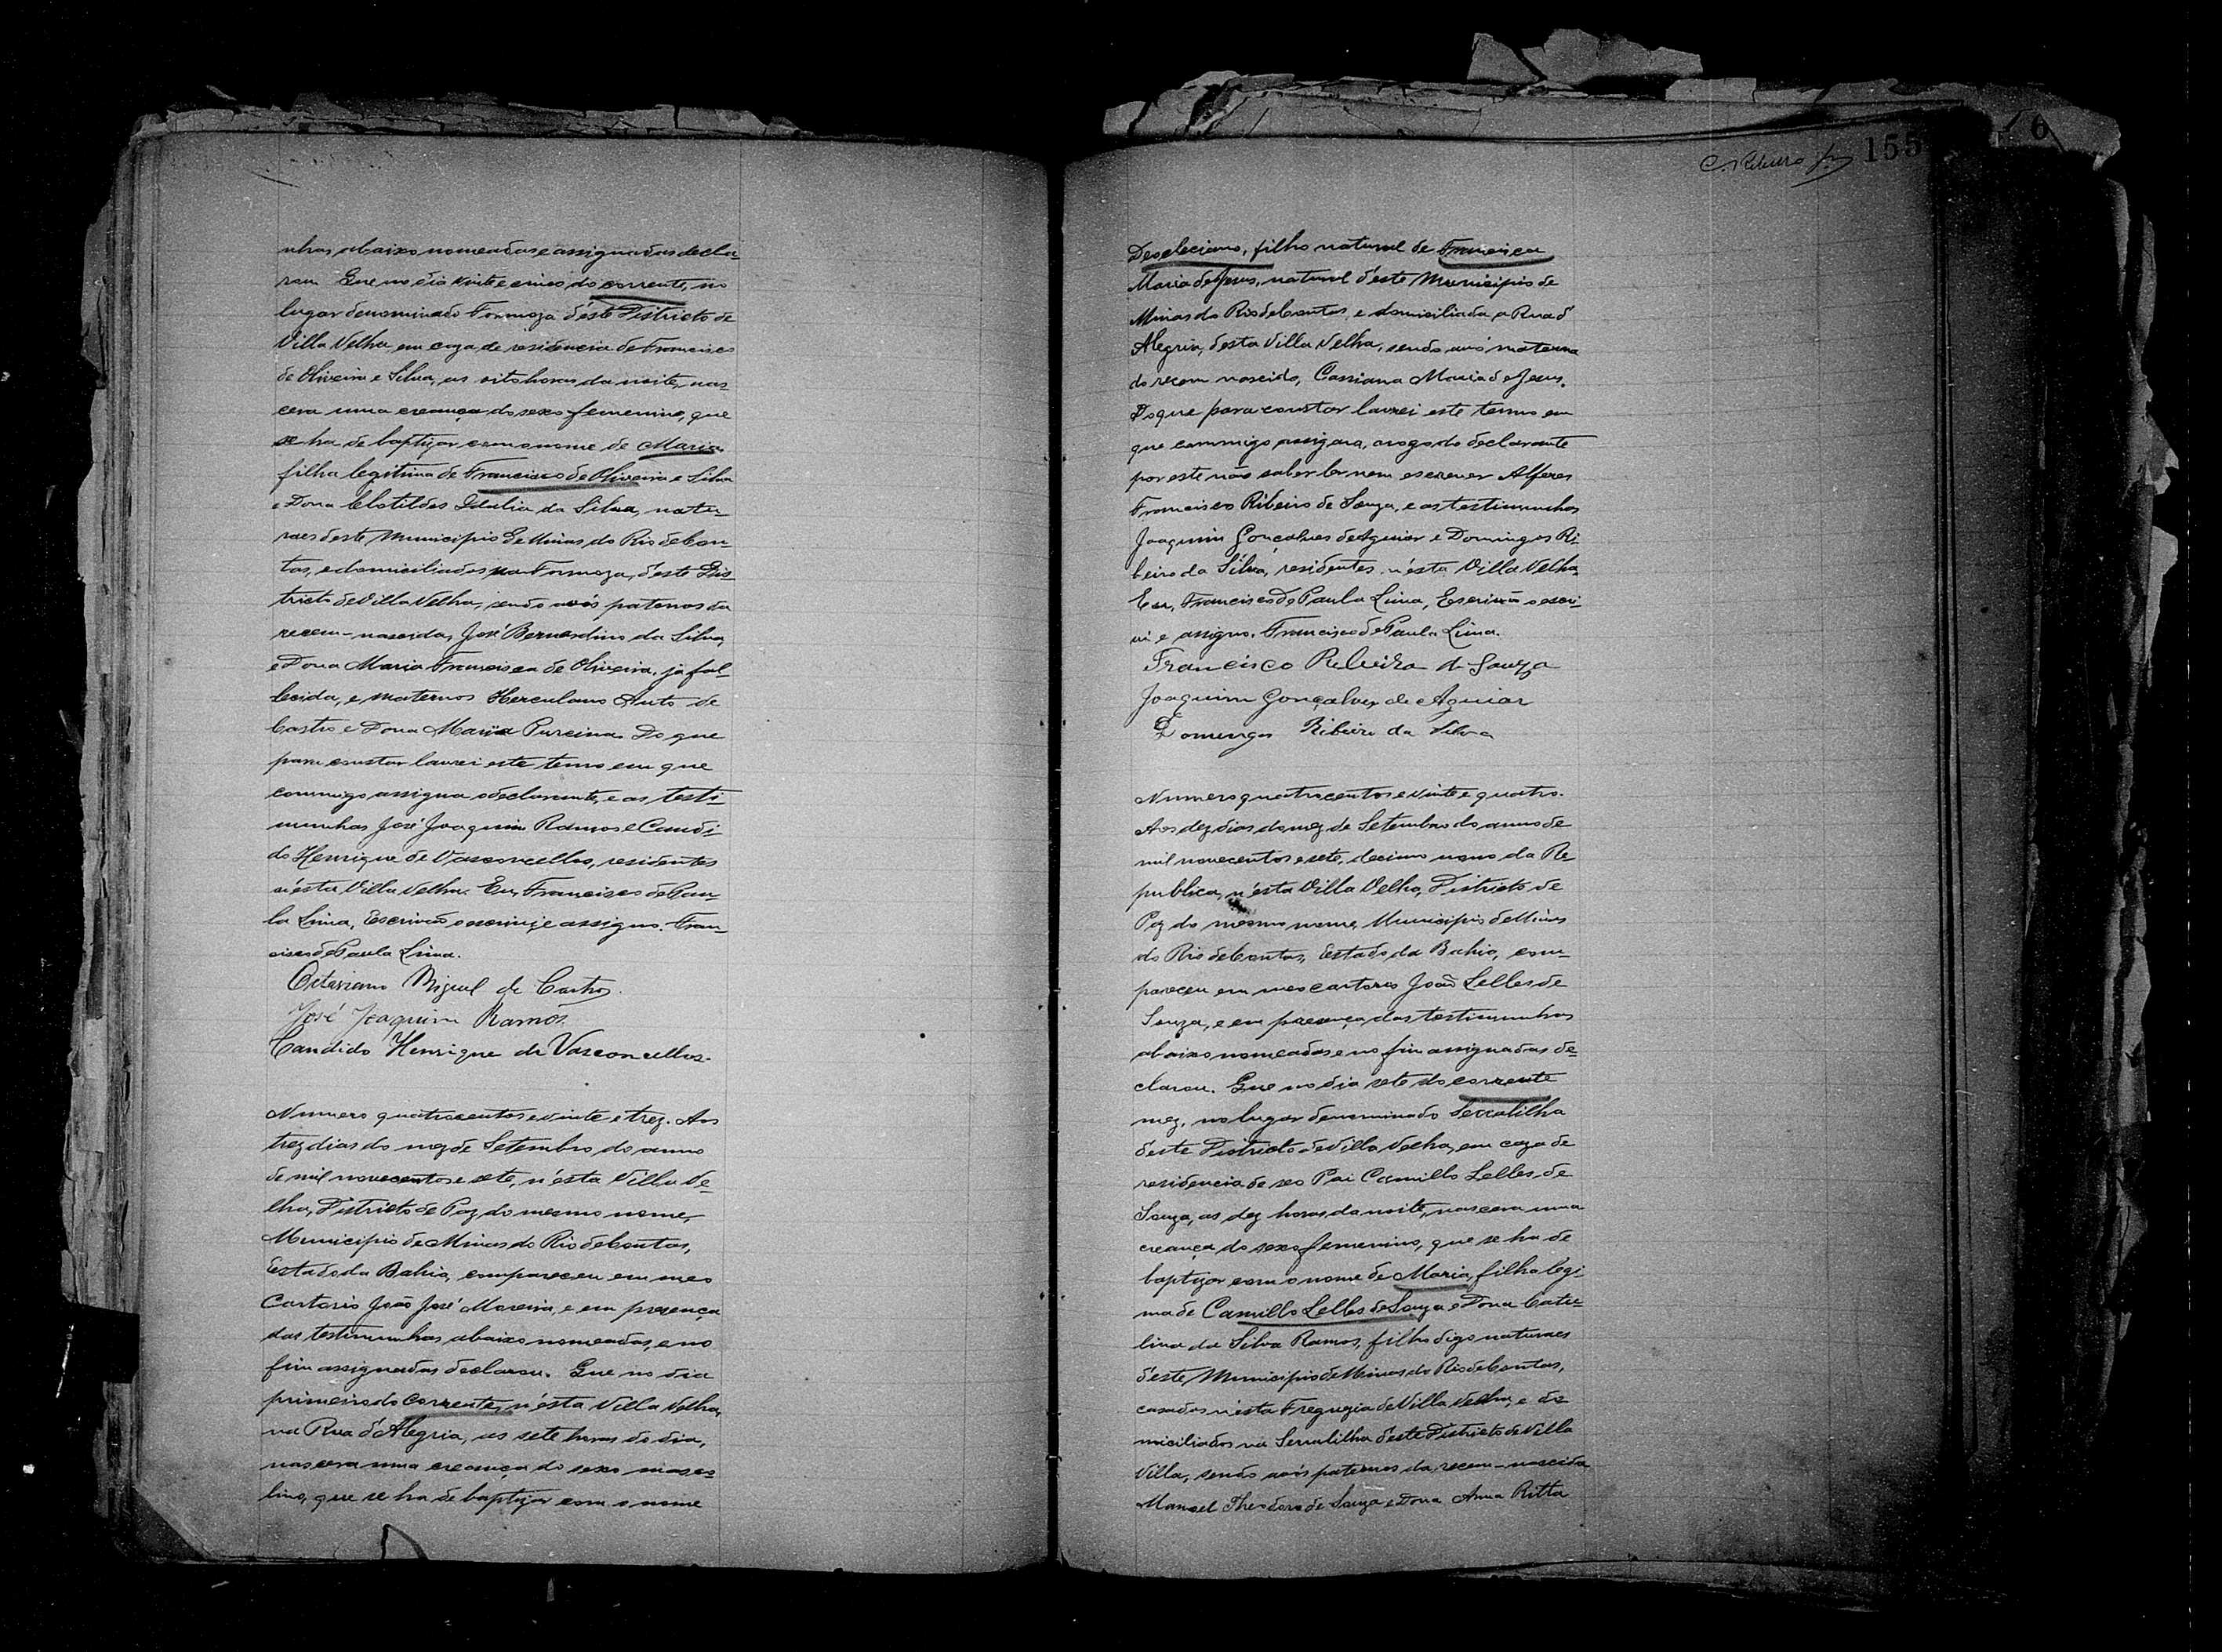 nhas abaixo nomeadas e assignadas decla-
rou Que no dia vinte e cinco do corrente, no
lugar denominado Formoza d'este Districto de
Villa Velha, em caza de residencia de Francisco
de Oliveira e Silva, as oito horas da noite, nas-
cera uma creança do sexo femenino, que
se ha de baptizar com o nome de Maria,
filha legitima de Francisco de Oliveira e Silva
e Dona Clotildes Idalia da Silva, natu-
raes deste Municipio de Minas do Rio de Con-
tas, e domiciliados na Formoza, d'este Dis-
tricto de Villa Velha, sendo avós paternos da
recem-nascida, José Bernardino da Silva,
e Dona Maria Francisca de Oliveira, ja fal-
lecida, e maternos Herculano Auto de
Castro e Dona Maria Purcina. Do que
para constar lavrei este termo em que
commigo assigna o declarante, e as testi
munhas José Joaquim Ramos e Candi-
do Henrique de Vasconcellos, residentes
n'esta Villa Velha. Eu, Francisco de Pau-
la Lima, Escrivão o escrevi e assigno. Fran-
cisco de Paula Lima.
Octaviano Miguel de Castro.
José Joaquim Ramos.
Candido Henrique de Vasconcellos.
Numero quatrocentos e vinte e trez. Aos
trez dias do mez de Setembro do anno
de mil novecentos e sete, n'esta Villa Ve-
lha, Districto de Paz do mesmo nome,
Municipio de Minas do Rio de Contas,
Estado da Bahia, compareceu em meo
Cartorio João José Moreira, e em presença
das testimunhas abaixo nomeadas, e no
fim assignadas declarou. Que no dia
primeiro do corrente, n'esta Villa Velha,
na Rua d'Alegria, as sete horas do dia,
nascera uma creança do sexo mascu-
lino, que se ha de baptizar com o nome
C. Ribeiro Jr 155
6
Deocleciano, filho natural de Francisca
Maria de Jesus, natural d'este Municipio de
Minas do Rio de Contas, e domiciliada a Rua d'
Alegria, desta Villa Velha, sendo avó materna
do recem nascido, Cassiana Maria de Jesus.
Do que para constar lavrei este termo em
que commigo assigna, a rogo do declarante
por este não saber ler nem escrever Alferes
Francisco Ribeiro de Souza, e as testimunhas
Joaquim Gonçalves de Aguiar e Domingos Ri-
beiro da Silva, residentes n'esta Villa Velha.
Eu, Francisco de Paula Lima, Escrivão o escre-
vi e assigno. Francisco de Paula Lima.
Francisco Ribeiro de Souza
Joaquim Gonçalves de Aguiar
Domingos Ribeiro da Silva
Numero quatrocentos e vinte e quatro.
Aos dez dias do mez de Setembro do anno de
mil novecentos e sete, decimo nono da Re-
publica, n'esta Villa Velha, Districto de
Paz do mesmo nome, Municipio de Minas
do Rio de Contas, Estado da Bahia, com-
pareceu em meo cartorio João Lelles de
Souza, e em presença das testimunhas
abaixo nomeadas e no fim assignadas de-
clarou. Que no dia sete do corrente
mez, no lugar denominado Serratilha
deste Districto de Villa Velha, em caza de
residencia de seo Pai Camillo Lelles de
Souza, as dez horas da noite, nascera uma
creança do sexo femenino, que se ha de
baptizar com o nome de Maria, filha legi-
ma de Camillo Lelles de Souza e Dona Catu-
lina da Silva Ramos, filho digo naturaes
d'este Municipio de Minas do Rio de Contas,
casados n'esta Freguezia de Villa Velha, e do
miciliados na Serratilha d'este Districto de Villa
Villa, sendo avós paternos da recem-nascida
Manoel Theodoro de Souza e Dona Anna Ritta